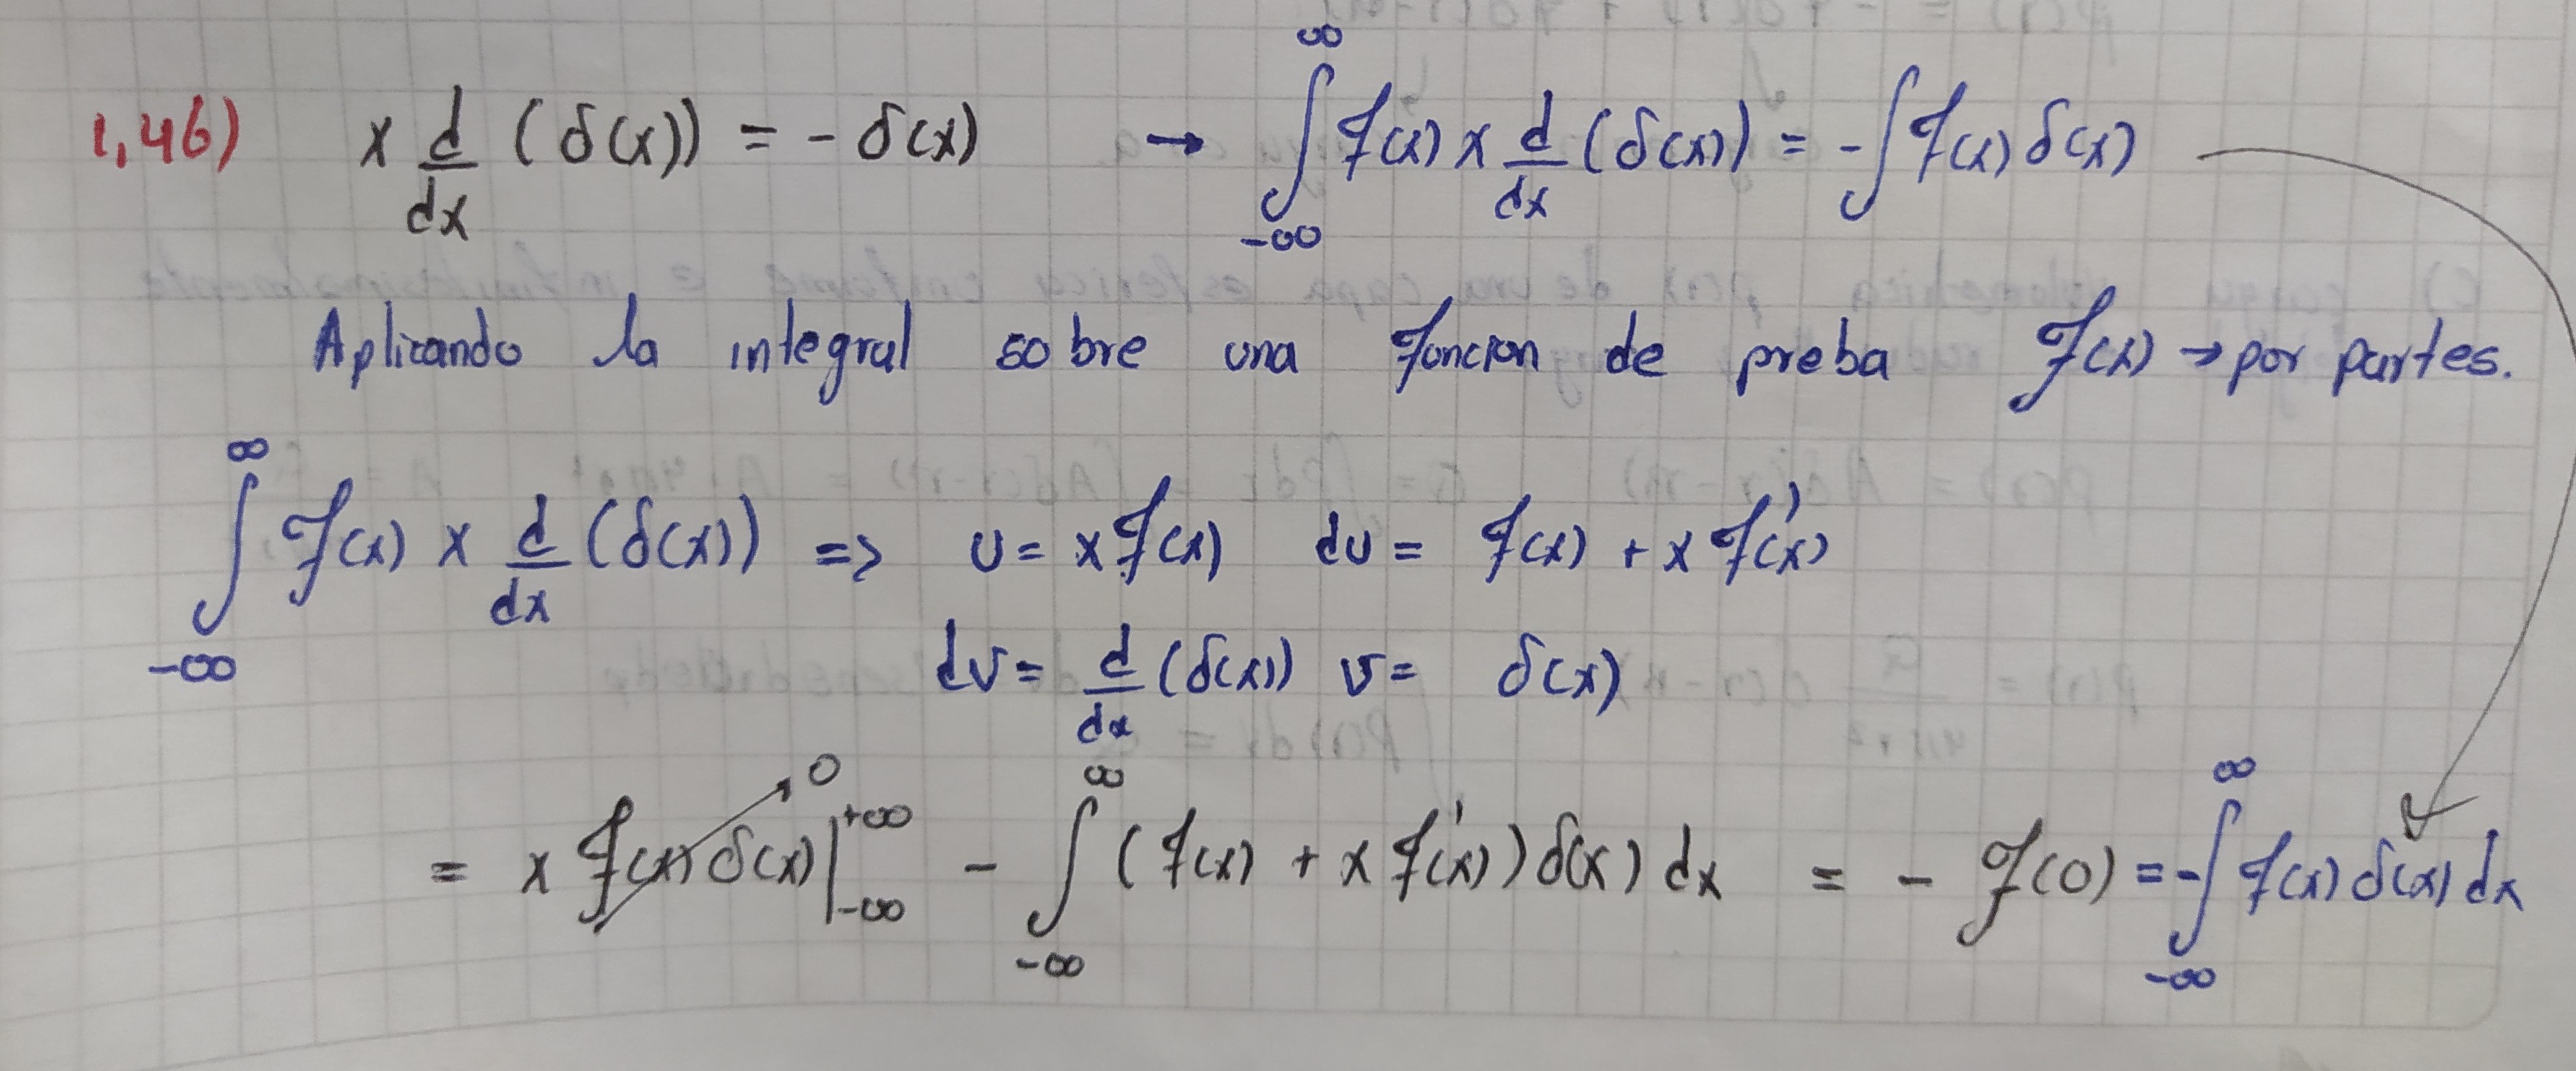 1,46) x d/dx (δ(x)) = - δ(x) → ∫_{-∞}^{∞} f(x) x d/dx (δ(x)) = - ∫ f(x) δ(x)
Aplicando la integral sobre una funcion de preba f(x) → por partes.
∫_{-∞}^{∞} f(x) x d/dx (δ(x)) => u = x f(x) du = f(x) + x f'(x)
dv = d/dx (δ(x)) v = δ(x)
= x f(x) δ(x) |_{-∞}^{+∞} → 0 - ∫_{-∞}^{∞} (f(x) + x f'(x)) δ(x) dx = - f(0) = - ∫_{-∞}^{∞} f(x) δ(x) dx